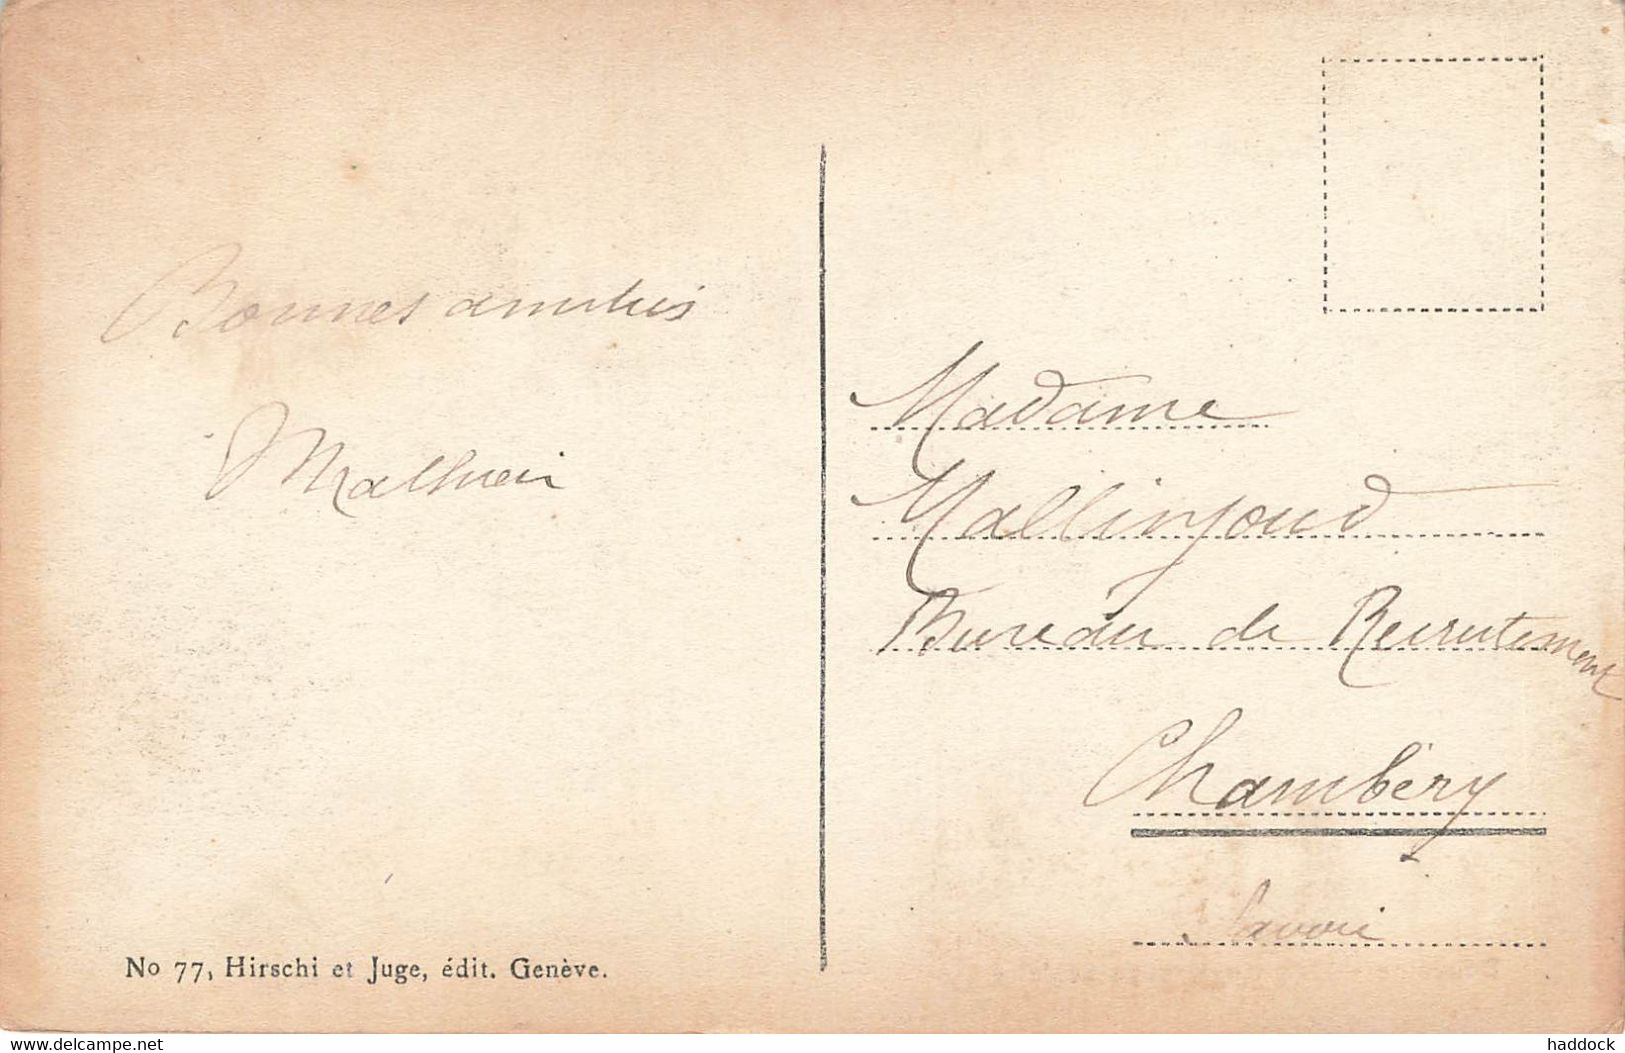 Bonnes amitiés
Mathieu
Madame
Mallinjoud
Bureau de Recrutement
Chambéry
Savoie
No 77, Hirschi et Juge, édit. Genève.
www.delcampe.net
haddock